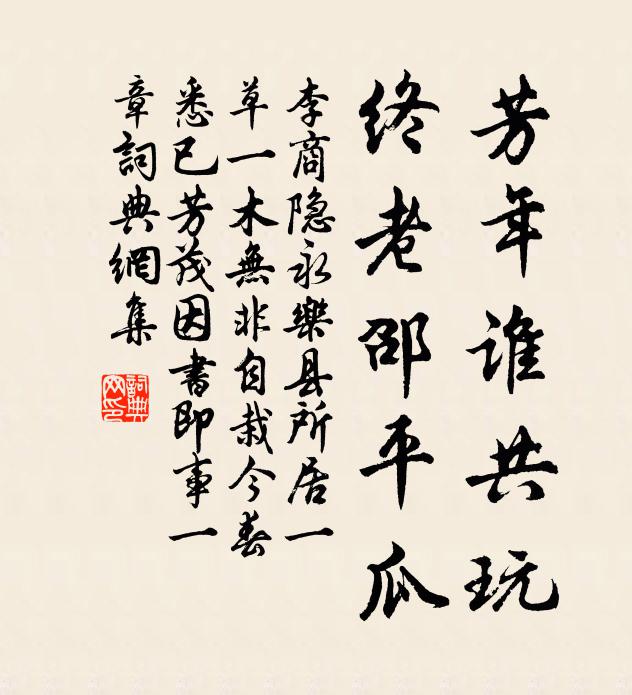 芳年谁共玩
终老邵平瓜
李商隐永樂县所居一
草一木無非自栽今春
悉已芳茂因書即事一
章詞典網集
詞典網印